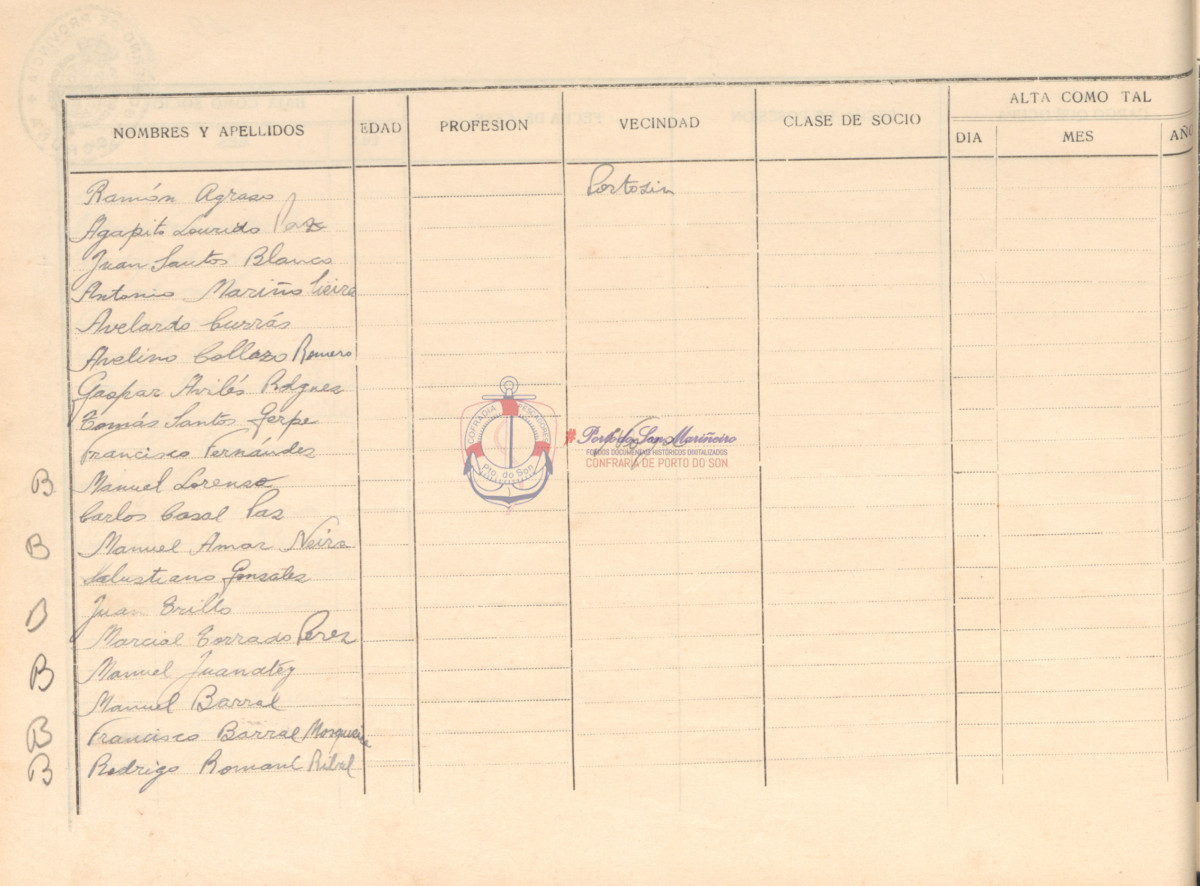 ALTA COMO TAL
NOMBRES Y APELLIDOS EDAD PROFESION VECINDAD CLASE DE SOCIO DIA MES AÑO
Ramón Agraso Portosin
Agapito Lourido Paz
Juan Santos Blanco
Antonio Mariño Vieira
Avelardo Currás
Avelino Collazo Romero
Gaspar Avilés Rodgues
Tomás Santos Gerpe
Francisco Fernández
B Manuel Lorenso
Carlos Casal Paz
B Manuel Amar Neira
Salustiano Gonsáles
B Juan Trillo
Marcial Torrado Perez
B Manuel Juanatey
Manuel Barral
B Francisco Barral Mosqueira
B Rodrigo Romaní
COFRADIA PESCADORES
Pto. do Son
#Porto do Son Mariñeiro
FONDOS DOCUMENTAIS HISTÓRICOS DIXITALIZADOS
CONFRARÍA DE PORTO DO SON